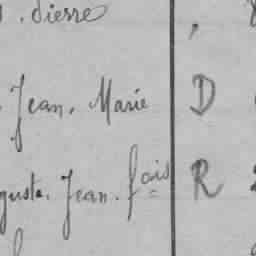 . Pierre ,
. Jean. Marie D
guste. Jean. fçais R